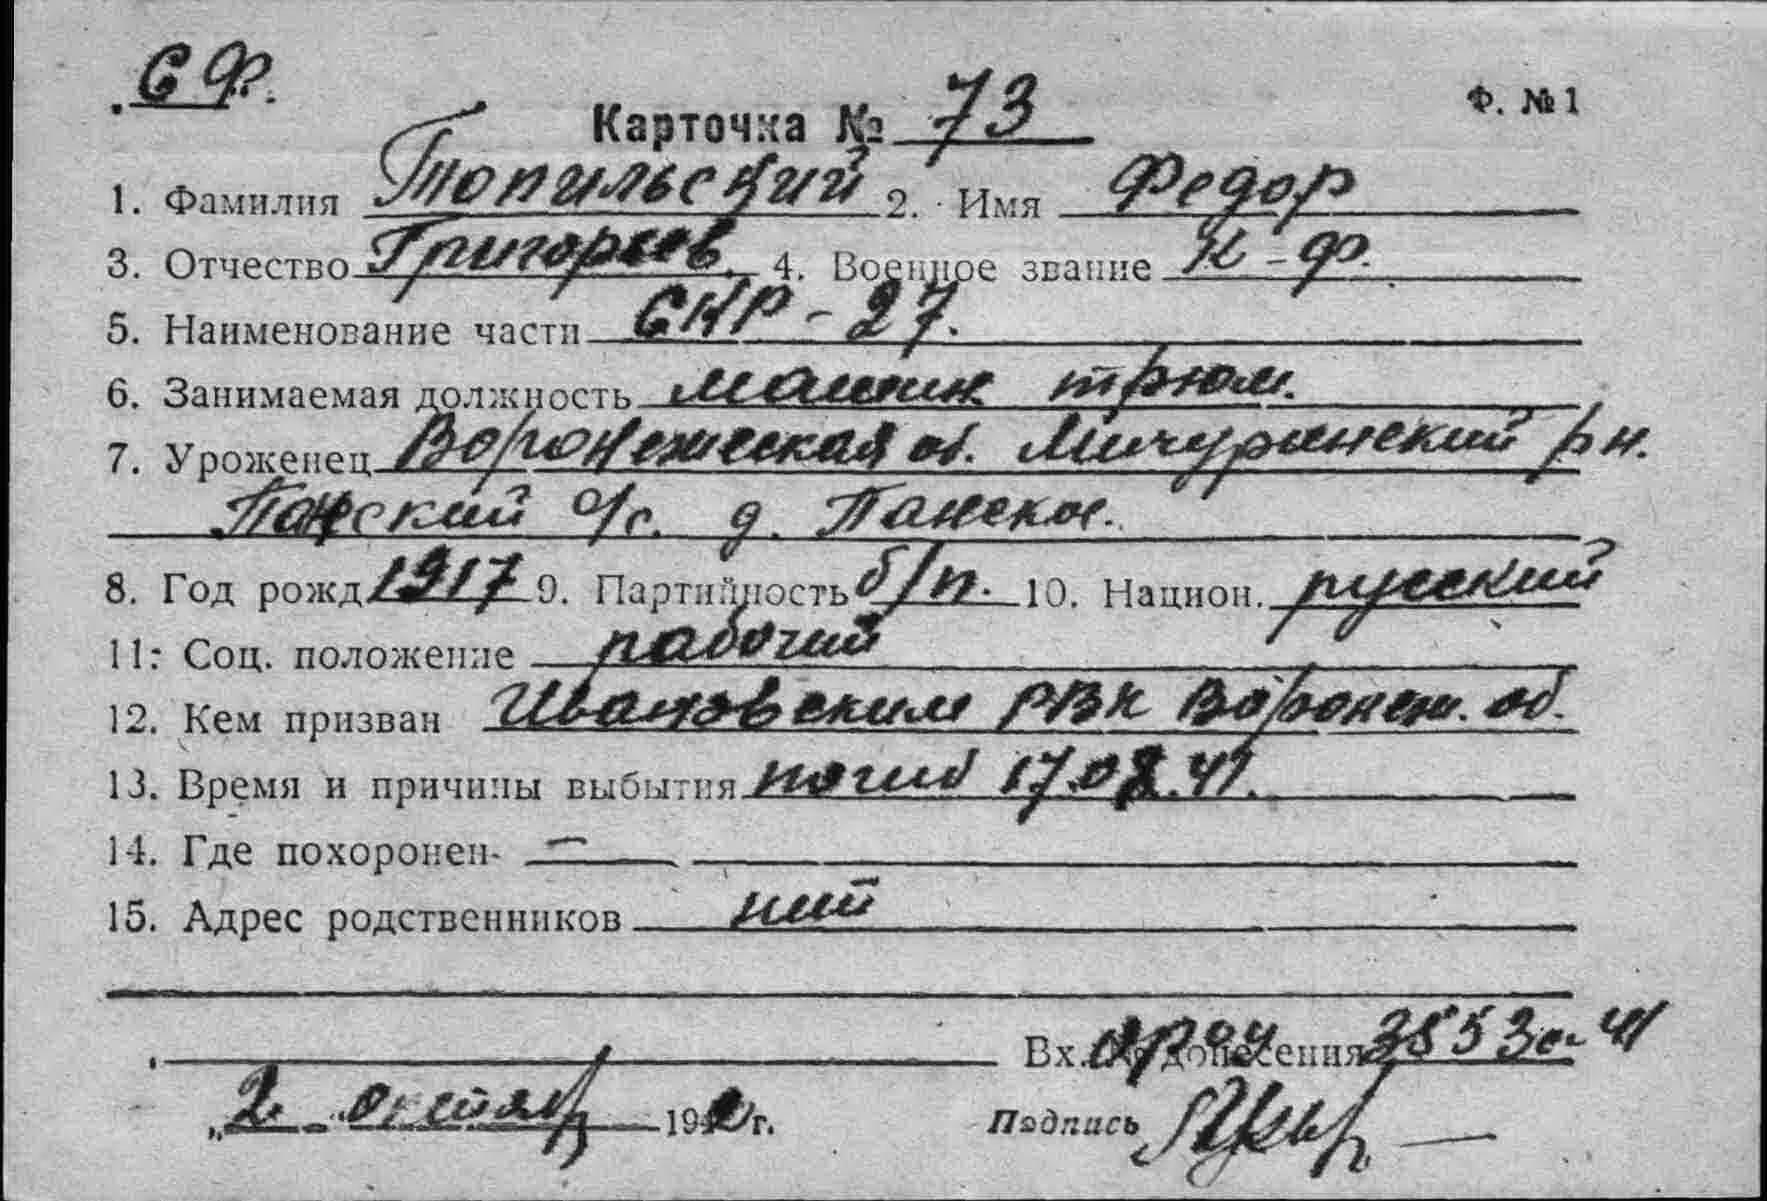 СФ.
Ф. №1
Карточка № 73
1. Фамилия Топильский 2. Имя Федор
3. Отчество Григорьев. 4. Военное звание К-Ф.
5. Наименование части СКР-27.
6. Занимаемая должность машин. трюм.
7. Уроженец Воронежская об. Мичуринский р н.
Панский с/с. д. Панское.
8. Год рожд 1917 9. Партийность б/п. 10. Национ. русский
11. Соц. положение рабочий
12. Кем призван Ивановским РВК Воронеж. об.
13. Время и причины выбытия погиб 17.08.41.
14. Где похоронен —
15. Адрес родственников
Вх. донесения 3553с-41
„2 октяб 194 г.
Подпись